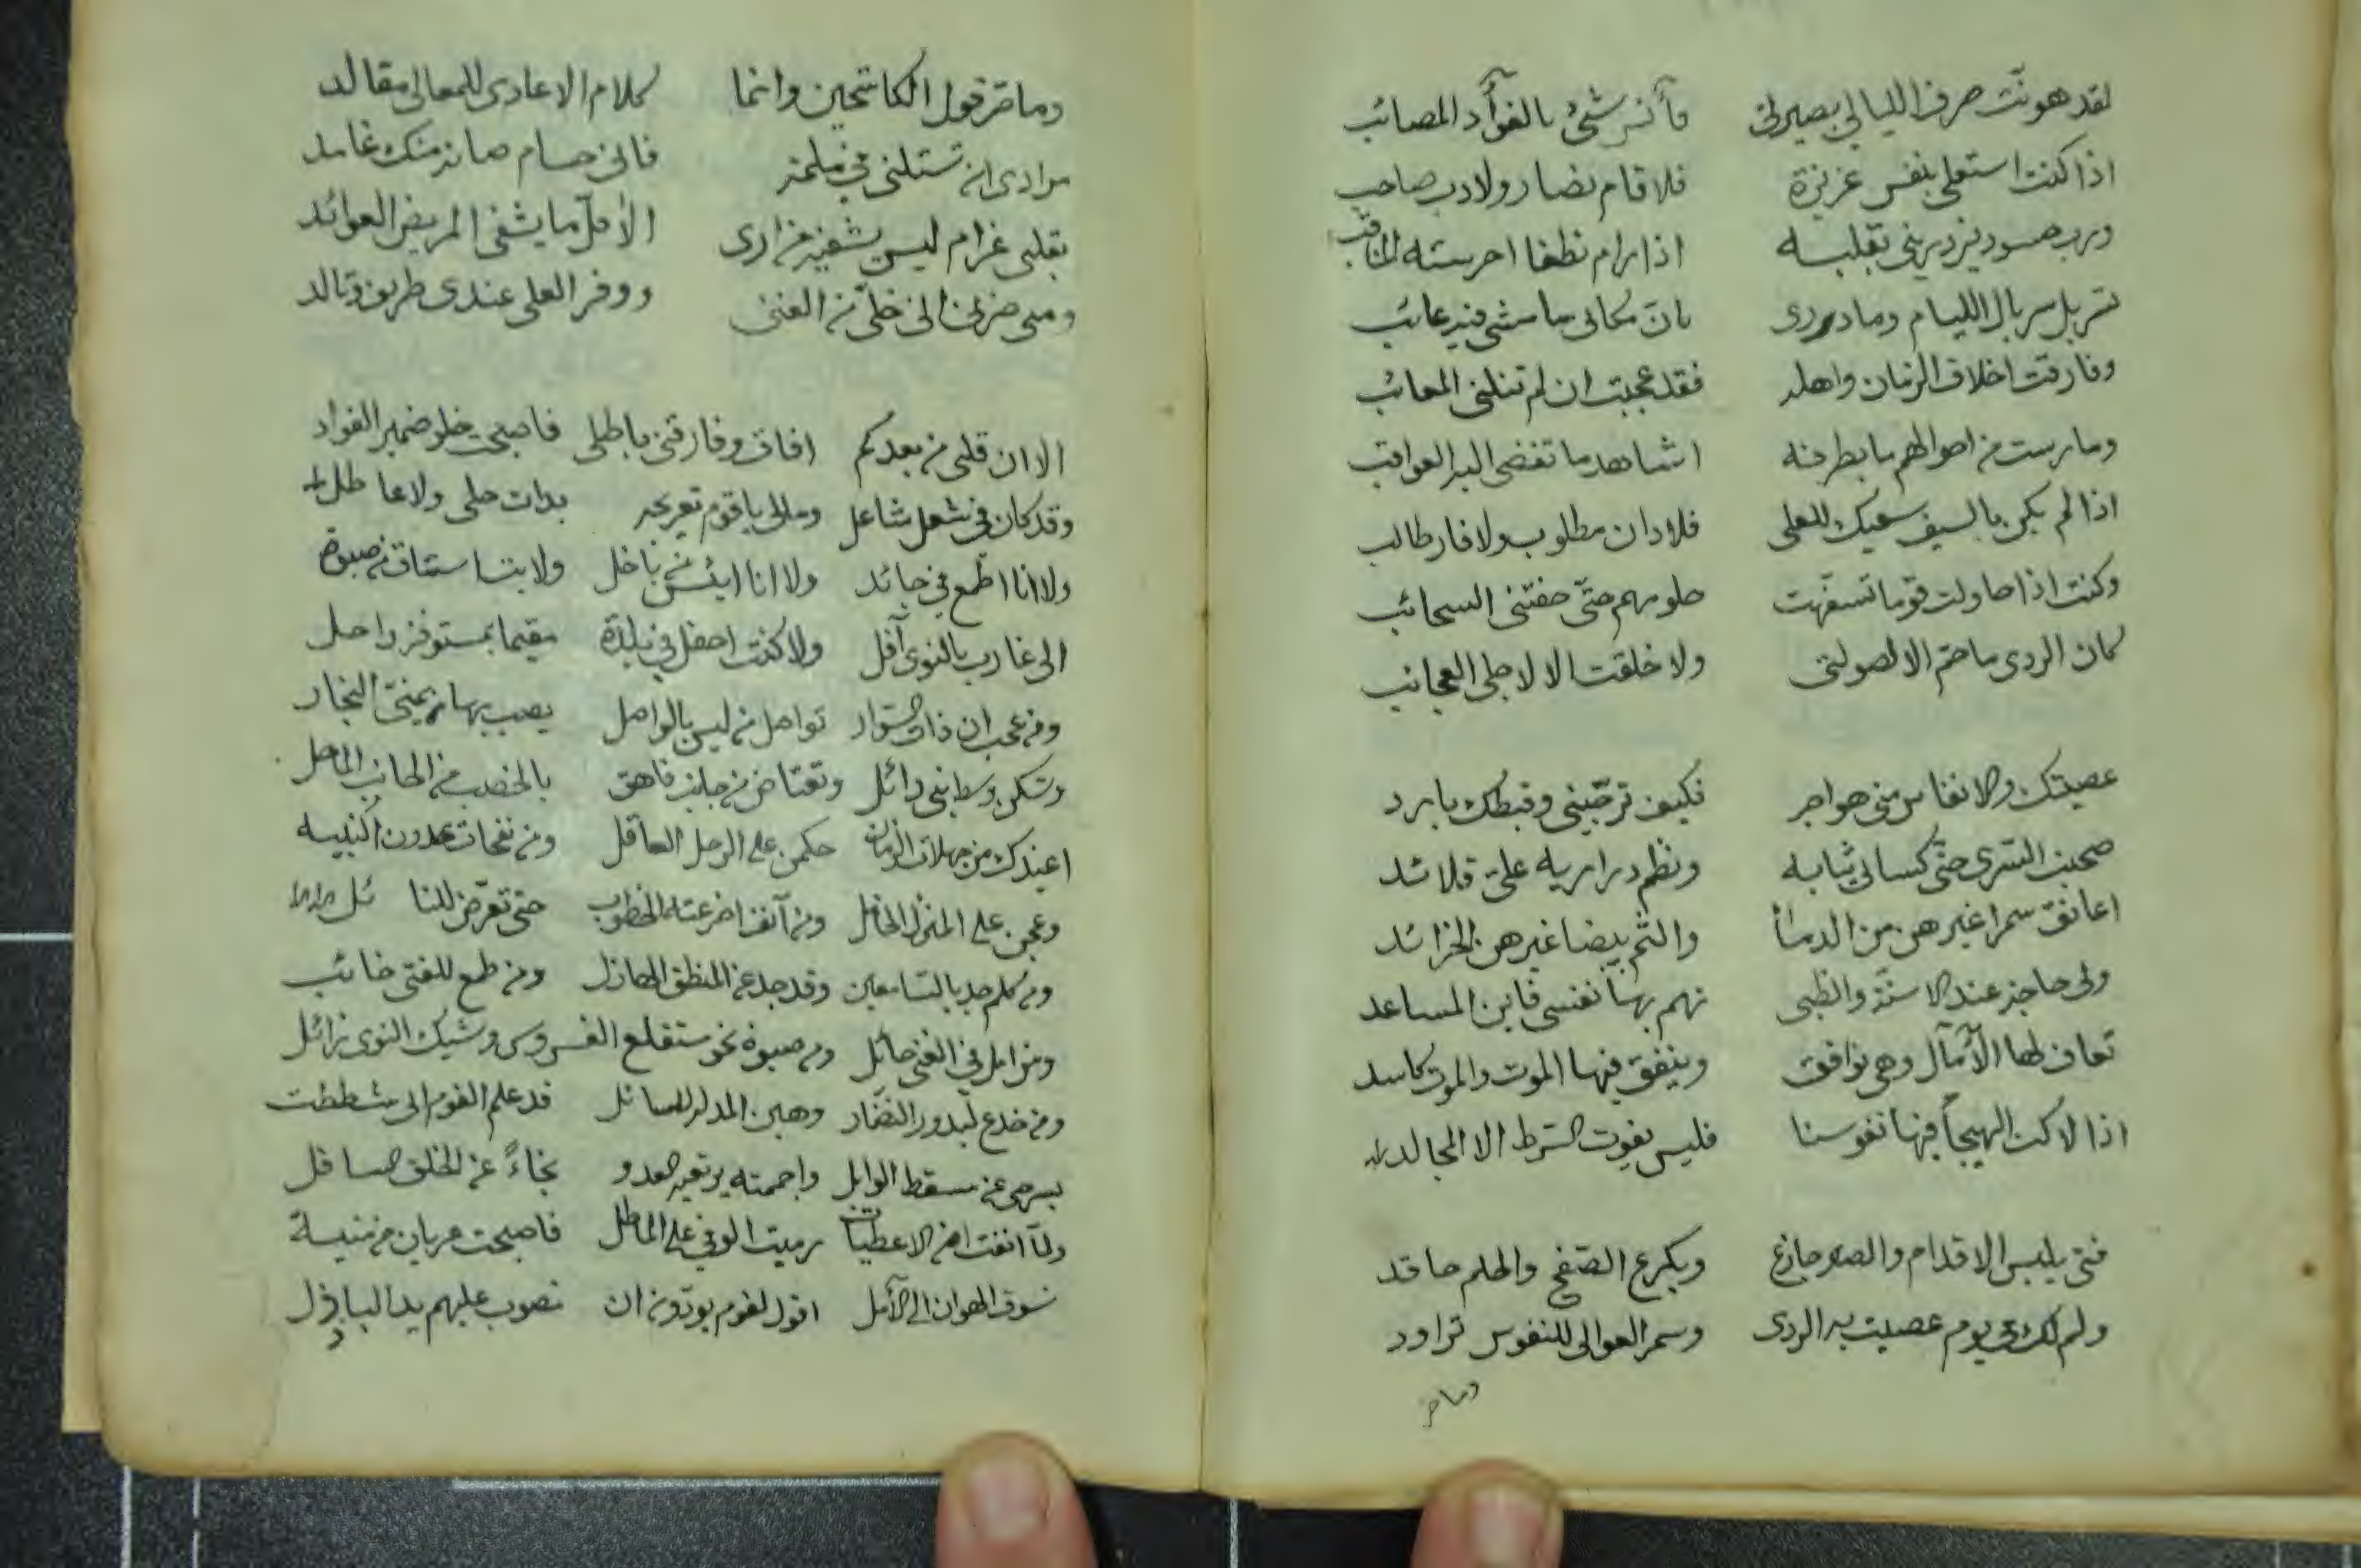 لقد هونت صرف الليالي بصيرتي فآنس شئ بالفوأد المصائب
اذا كنت استعلي بنفس عزيزة فلا قام نصار ولا دب صاحب
ورب حسود يزدريني بقلبه اذا رام نطقا اخرسته المناقب
تسربل سربال الليام وما درى بان مكاني ما مشى فيه عائب
وفارقت اخلاق الزمان واهله فقد عجبت ان لم تنلني المعائب
ومارست من احوالهم ما بطرفه اشاهد ما تفضي اليه العواقب
اذا لم يكن بالسيف سعيك للعلى فلا دان مطلوب ولا فاز طالب
وكنت اذا حاولت قوما تسفهت حلومهم حتى حفتني السحائب
كان الردى ما حم الا لصولتي ولا خلقت الا لاجلي العجائب
عصيتك والانفاس مني هواجر فكيف ترجيني وقبظك بارد
صحبت السرى حتى كسالي ثيابه ونظم دراريه علي قلائد
اعانق سمرا غيرهن من الدما والثم بيضا غيرهن الخرائد
ولى حاجز عند الاسنة والظبى تهم بها نفسي فاين المساعد
تعاف لها الآمال وهي نوافق وينفق فيها الموت والموت كاسد
اذا لاكت الهيجا فيها نفوسنا فليس يفوت السرط الا المجالد
فتى يلبس الاقدام والصبر جازع ويكرع الصفح والحلم حاقد
ولم لك في يوم عصيت به الردى وسمر العوالي للنفوس تراود
وما ضر
وما ضر قول الكاشحين وانما كلام الاعادى للمعالي مقالد
مرادى ان تستلني في ملمة فاني حسام صانه منك غامد
بقلبى غرام ليس يشفيه من ارى الاقل ما يشفى المريض العوائد
ومن ضرني اني خلي من الغنى ووفر العلى عندى طريف وتالد
الا ان قلبى من بعدكم افاق وفارقني باطلى فاصبحت خلو ضمير الفواد
وقد كان في شغل شاغل ومالي يا قوم تعريجه بذات حلى ولا عاطل
ولا انا اطمع في جائد ولا انا ايئس من باخل ولا بت استاق من صبوة
الى غارب بالنوى آفل ولا كنت احفل في بلدة مقيما بمستوفز راحل
ومن عجب ان ذات السوار تواصل من ليس بالواصل يصيب بها يمني النجار
وتسكن وسط بنى وائل وتعتاض من جانب فاهق بالخصب من الجانب الماحل
اعيذك من جهلات الزمان حكمن على الرجل العاقل ومن نفحات عدون النبيه
وعجن على المنزل الخامل ومن آنف اضرعته الخطوب حتى تعرض للنا ئل
ومن كلم جد بالسامعين وقد جد عن المنطق الهازل ومن طمع للفتى خائب
ومن امل في الغنى حائل ومن صبوة نحو ستقلع الغروس وشيك النوى زائل
ومن خدع لبدور النضار وهبن المدله للسائل قد علم القوم اني شططت
بسرحي عن مسقط الوابل واجممته يرتعيه العدو نجاءً عن الخلق السافل
ولما انفت من الاعطيات رميت الوفي على الماطل فاصبحت عريان من منيسة
تسوق الهوان الى الآمل اقول لقوم يودون ان تصوب عليهم يد الباذل